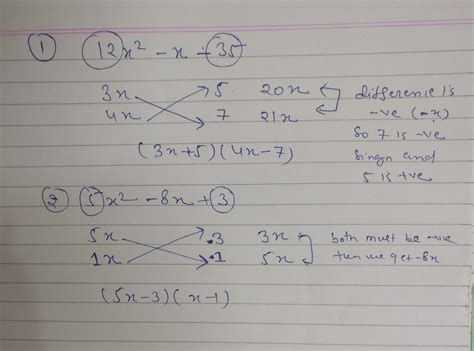 ① 12x² - x - 35
3x 5 20x difference is
4x 7 21x -ve (-x)
so 7 is -ve
(3x+5)(4x-7) singn and
5 is +ve
② 5x² - 8x + 3
5x .3 3x both must be -ve
1x .1 5x then we get -8x
(5x-3)(x-1)